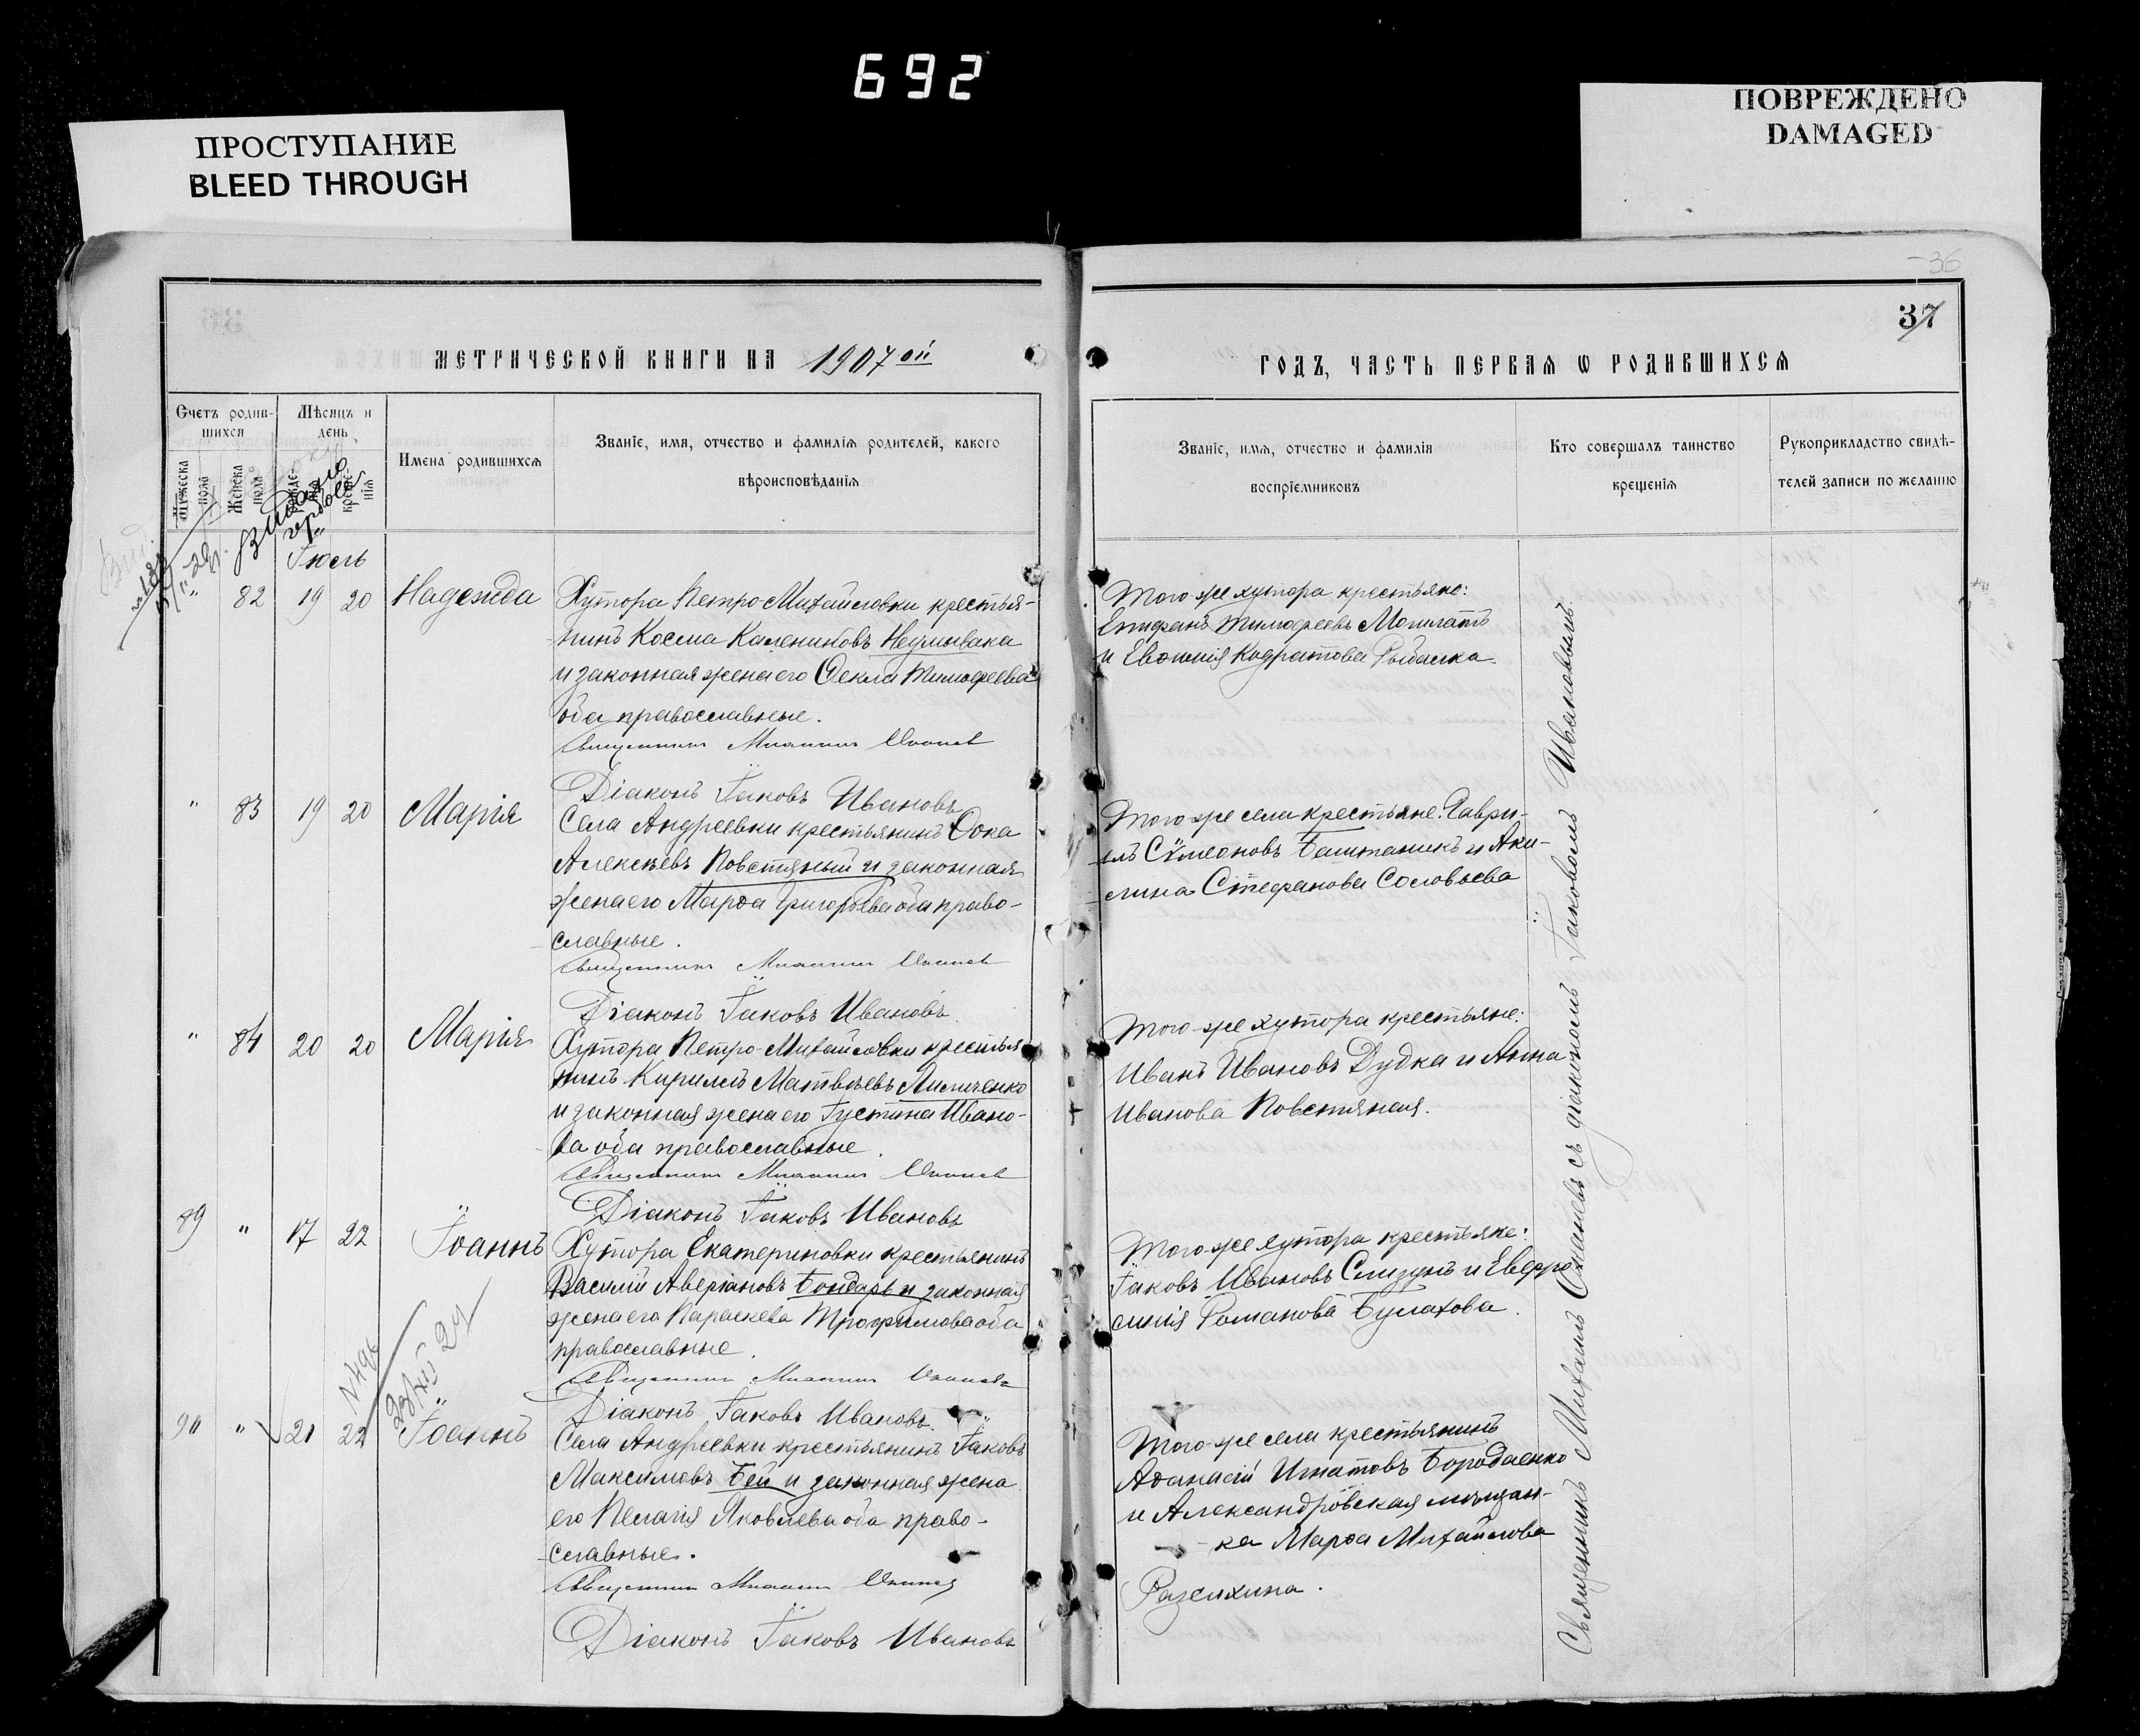 692
ПРОСТУПАНИЕ
BLEED THROUGH
ПОВРЕЖДЕНО
DAMAGED
36
37
МЕТРИЧЕСКОЙ КНИГИ НА 1907 ой
ГОДЪ, ЧАСТЬ ПЕРВАЯ Ѡ РОДИВШИХСЯ
Счетъ родив-
шихся
Мужеска
пола
Женска
пола
Мѣсяцъ и
день
креще-
нія
Имена родившихся
Званіе, имя, отчество и фамилія родителей, какого
вѣроисповѣданія
Званіе, имя, отчество и фамилія
воспріемниковъ
Кто совершалъ таинство
крещенія
Рукоприкладство свидѣ-
телей записи по желанію
Іюль
" 82 19 20 Надежда
Хутора Петро Михайловки крестья-
нинъ Косма Калениковъ Неумывака
и законная жена его Ѳекла Тимофеева
оба православные.
Священникъ Михаилъ
Діаконъ Іаковъ Ивановъ
Того же хутора крестьяне:
Епифанъ Тимофеевъ Мошлатъ
и Евѳимія Кодратова Рыбалка.
" 83 19 20 Марія
Села Андреевки крестьянинъ Ѳока
Алексѣевъ Повстяный и законная
жена его Марѳа Григорьева оба право-
славные.
Священникъ Михаилъ
Діаконъ Іаковъ Ивановъ.
Того же села крестьяне: Гаври-
илъ Сѵмеоновъ Баштаникъ и Аки-
лина Стефанова Соловьева
" 84 20 20 Марія
Хутора Петро-Михайловки крестья
нинъ Кириллъ Матвѣевъ Личиченко
и законная жена его Іустина Ивано-
ва оба православные.
Священникъ Михаилъ
Діаконъ Іаковъ Ивановъ
Того-же хутора крестьяне:
Иванъ Ивановъ Дудка и Анна
Иванова Повстяная.
89 " 17 22 Іоаннъ
Хутора Екатериновки крестьянинъ
Василій Аверіановъ Бондарь и законная
жена его Параскева Трофимова оба
православные.
Священникъ Михаилъ
Діаконъ Іаковъ Ивановъ.
Того-же хутора крестьяне:
Іаковъ Ивановъ Слизунъ и Евфро
синія Романова Булахова.
90 " 21 22 Іоаннъ
Села Андреевки крестьянинъ Іаковъ
Максимовъ Бей и законная жена
его Пелагія Яковлева оба право-
славные.
Священникъ Михаилъ
Діаконъ Іаковъ Ивановъ
Того-же села крестьянинъ
Аѳанасій Игнатовъ Бородаенко
и Александровская мѣщан-
ка Марѳа Михайлова
Разсихина.
Священникъ Михаилъ съ діакономъ Іаковомъ Ивановымъ.